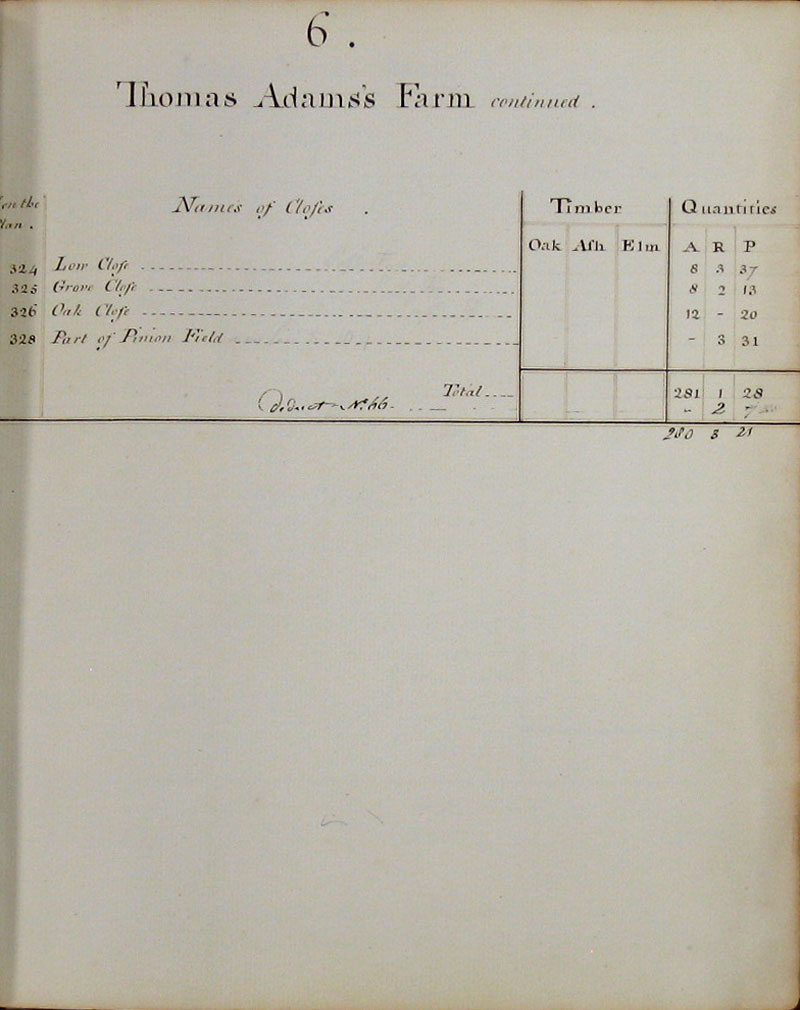 6.
Thomas Adams's Farm continued.
on the Names of Closes. Timber Quantities
Plan. Oak Ash Elm A R P
324 Low Close 8 3 37
325 Grove Close 8 2 13
326 Oak Close 12 - 20
328 Part of Pinion Field - 3 31
Total 281 1 28
Deduct No. 66 - 2 7
280 3 21